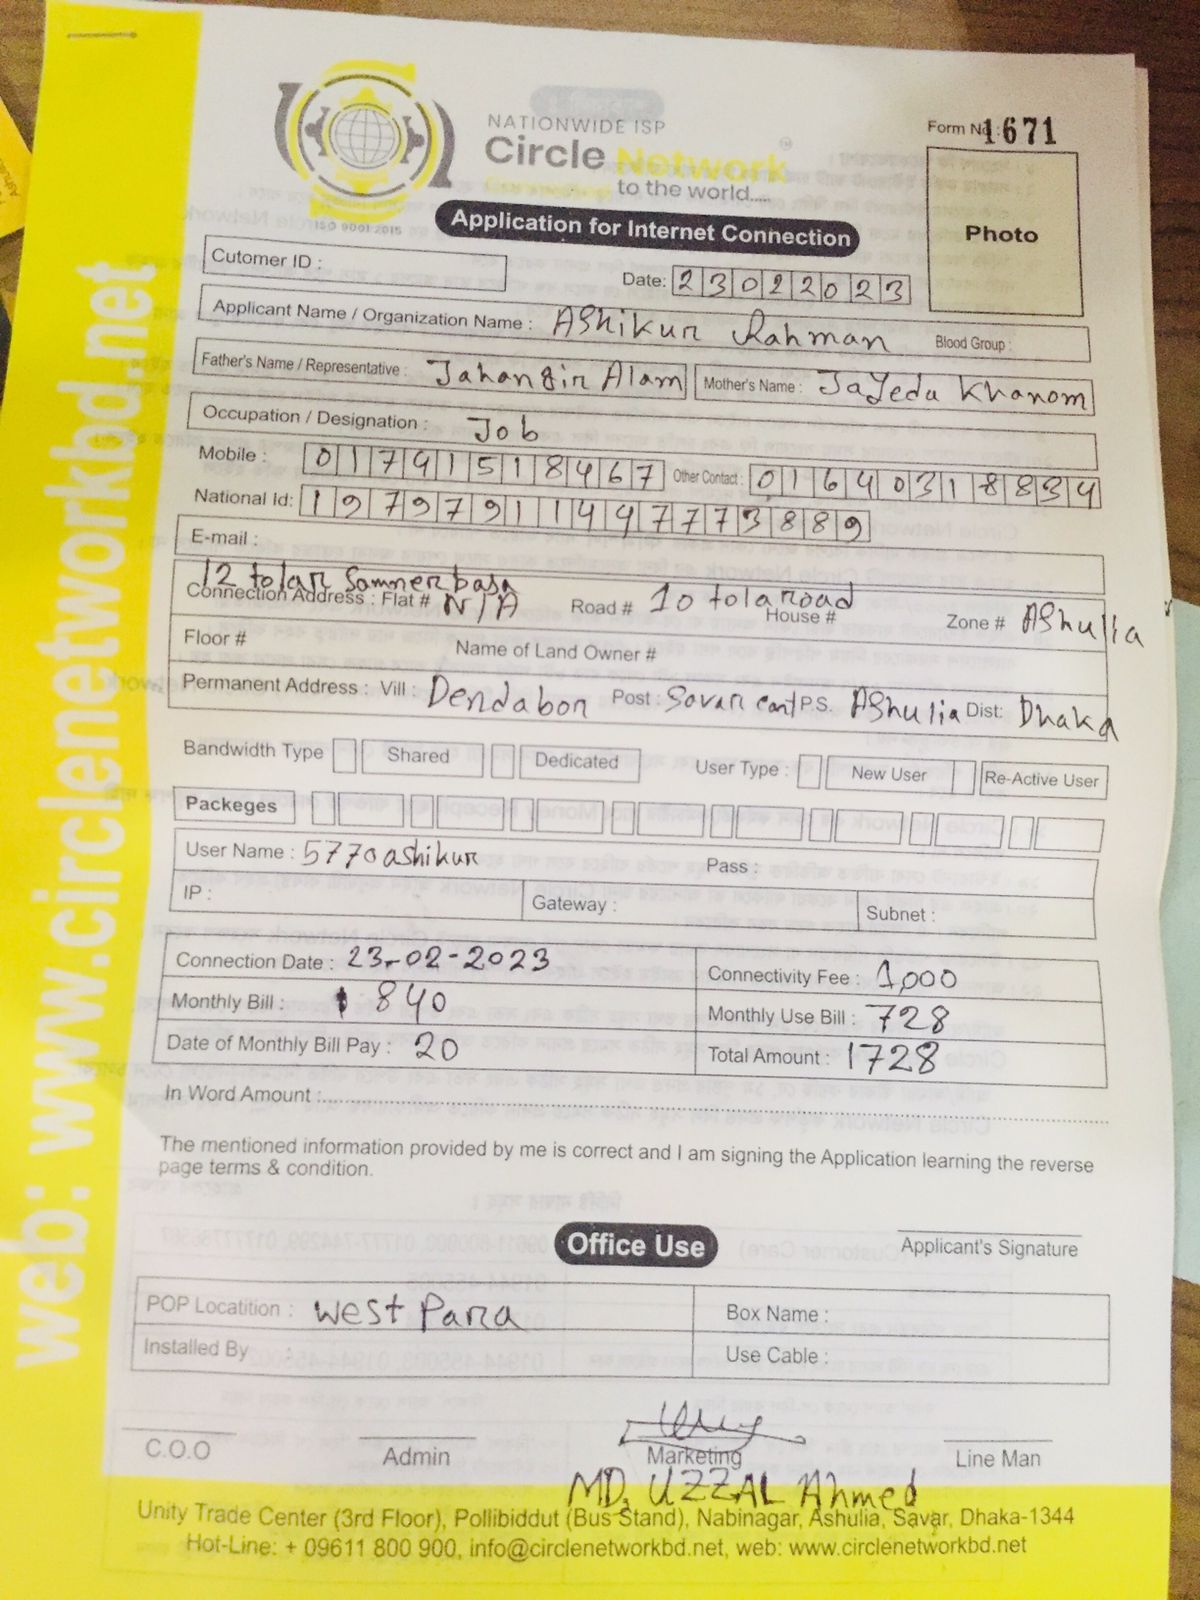 NATIONWIDE ISP
Circle Network
to the world.....
ISO 9001:2015
Form No: 1671
Photo
Application for Internet Connection
Cutomer ID :
Date: 23022023
Applicant Name / Organization Name : Ashikur Rahman Blood Group :
Father's Name / Representative : Jahangir Alam Mother's Name : Jayeda Khanom
Occupation / Designation : Job
Mobile : 01741518467 Other Contact : 01640318834
National Id: 19797911447773889
E-mail :
12 tolar Samner basa
Connection Address : Flat # N/A Road # 10 tola road House # Zone # Ashulia
Floor # Name of Land Owner #
Permanent Address : Vill : Dendabor Post : Savar cant P.S. Ashulia Dist: Dhaka
Bandwidth Type Shared Dedicated User Type : New User Re-Active User
Packeges
User Name : 5770ashikur Pass :
IP : Gateway : Subnet :
Connection Date : 23-02-2023 Connectivity Fee : 1,000
Monthly Bill : 840 Monthly Use Bill : 728
Date of Monthly Bill Pay : 20 Total Amount : 1728
In Word Amount :
The mentioned information provided by me is correct and I am signing the Application learning the reverse
page terms & condition.
Applicant's Signature
Office Use
POP Locatition : West Para Box Name :
Installed By : Use Cable :
C.O.O Admin Marketing Line Man
MD. UZZAL Ahmed
Unity Trade Center (3rd Floor), Pollibiddut (Bus Stand), Nabinagar, Ashulia, Savar, Dhaka-1344
Hot-Line: + 09611 800 900, info@circlenetworkbd.net, web: www.circlenetworkbd.net
web: www.circlenetworkbd.net